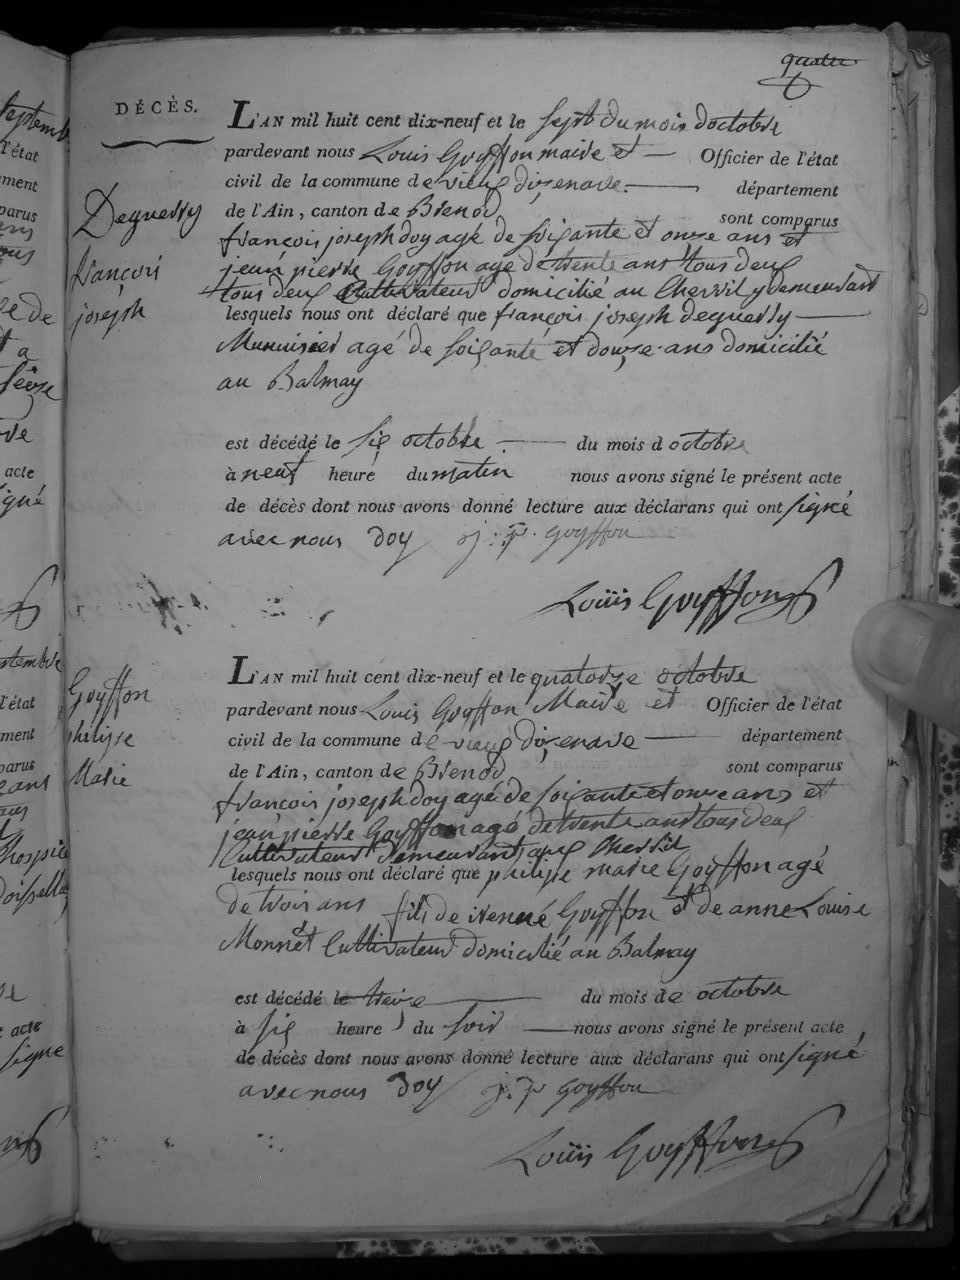 quatre
DÉCÈS.
L'AN mil huit cent dix-neuf et le sept du mois doctobre
pardevant nous Louis Goyffon maire et Officier de l'état
civil de la commune de vieux dizenave département
de l'Ain, canton de Brenod sont comparus
Deguerry
françois
joseph
françois joseph doy agé de soixante et onze ans et
jean pierre Goyffon agé de trente ans tous deux
tous deux Cultivateur domicilié au Chervil y demeurant
lesquels nous ont déclaré que françois joseph deguerry
Munuisier agé de soixante et douze ans domicilié
au Balmay
est décédé le six octobre du mois d octobre
à neuf heure du matin nous avons signé le présent acte
de décès dont nous avons donné lecture aux déclarans qui ont signé
avec nous doy j. p. goyffon
Louis Goyffon
L'AN mil huit cent dix-neuf et le quatorze octobre
pardevant nous Louis Goyffon Maire et Officier de l'état
civil de la commune de vieux dizenave département
de l'Ain, canton de Brenod sont comparus
Goyffon
philippe
Marie
françois joseph doy agé de soixante et onze ans et
jean pierre Goyffon agé de trente ans tous deux
Cultivateur demeurant au Chervil
lesquels nous ont déclaré que philippe marie Goyffon agé
de trois ans fils de Goyffon et de anne Louise
Monnet Cultivateur domicilié au Balmay
est décédé le treize du mois de octobre
à six heure du soir nous avons signé le présent acte
de décès dont nous avons donné lecture aux déclarans qui ont signé
avec nous Doy j. p goyffon
Louis Goyffon